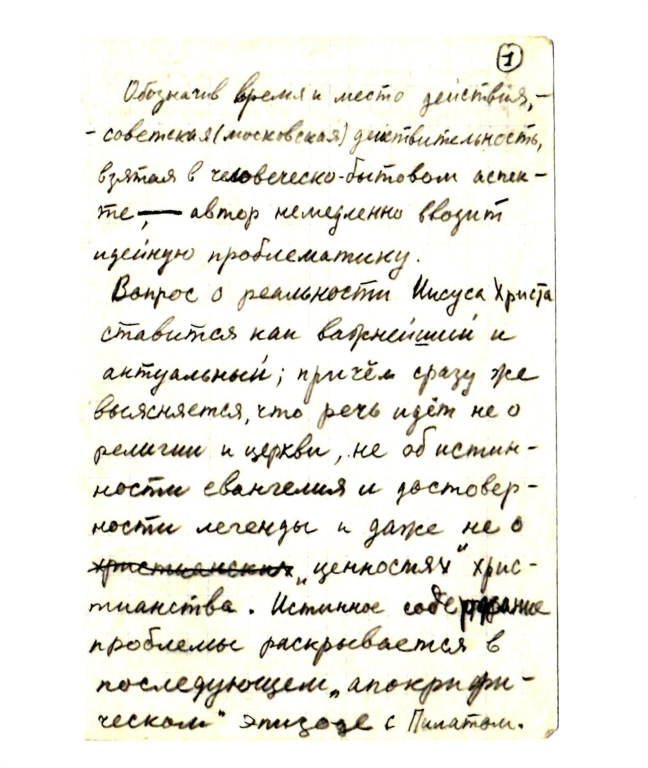 1
Обозначив время и место действия, -
- советская (московская) действительность,
взятая в человеческо-бытовом аспек-
те, — автор немедленно вводит
идейную проблематику.
Вопрос о реальности Иисуса Христа
ставится как важнейший и
актуальный; причём сразу же
выясняется, что речь идёт не о
религии и церкви, не об истин-
ности евангелия и достовер-
ности легенды и даже не о
христианских „ценностях" хрис-
тианства. Истинное содержание
проблемы раскрывается в
последующем „апокрифи-
ческом" эпизоде с Пилатом.